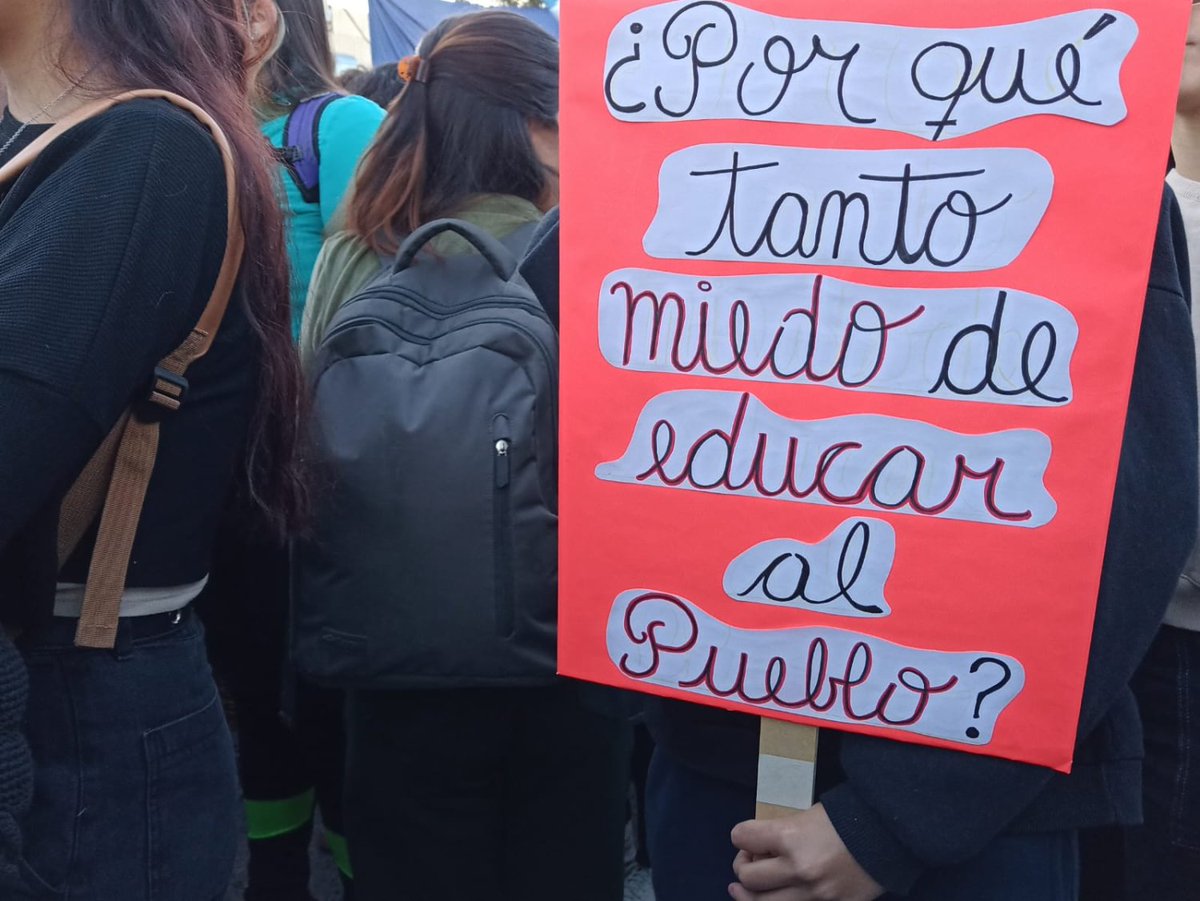 ¿Por qué
tanto
miedo de
educar
al
Pueblo?